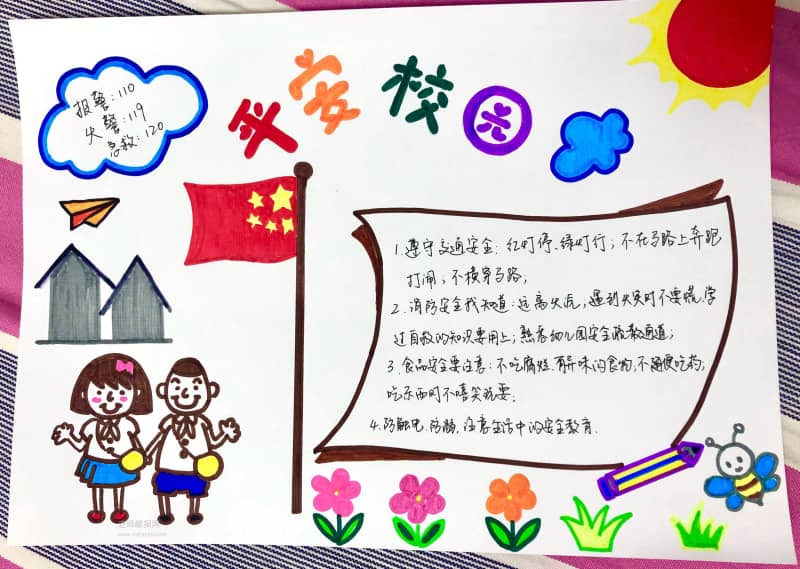 平安校园
报警:110
火警:119
急救:120
1.遵守交通安全:红灯停、绿灯行;不在马路上奔跑
打闹;不横穿马路;
2.消防安全我知道:远离火源;遇到火灾时不要慌,学
过自救的知识要用上;熟悉幼儿园安全疏散通道;
3.食品安全要注意:不吃腐烂、有异味的食物,不随便吃药;
吃东西时不嘻笑玩耍.
4.防触电、防溺,注意生活中的安全教育.